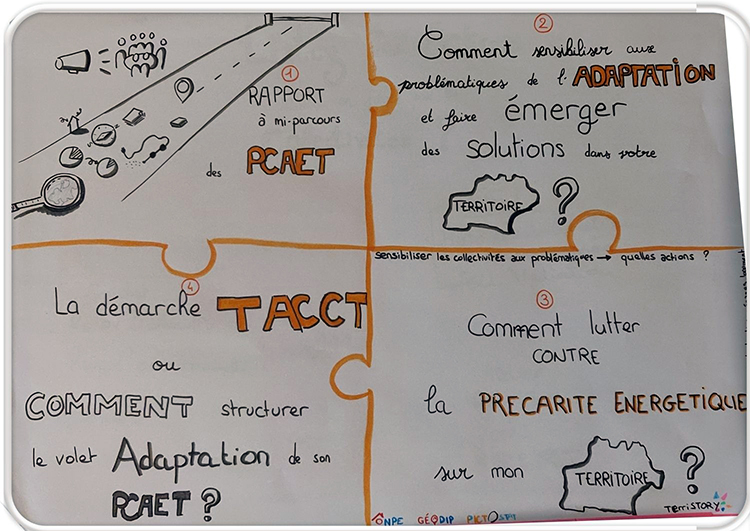 1
RAPPORT
à mi-parcours
des PCAET
2
Comment sensibiliser aux
problématiques de l'ADAPTATION
et faire émerger
des solutions dans votre
TERRITOIRE ?
sensibiliser les collectivités aux problématiques → quelles actions ?
3
Comment lutter
CONTRE
la PRECARITE ENERGETIQUE
sur mon TERRITOIRE ?
ONPE GÉODIP
TerriSTORY
4
La démarche TACCT
ou
COMMENT structurer
le volet Adaptation de son
PCAET ?